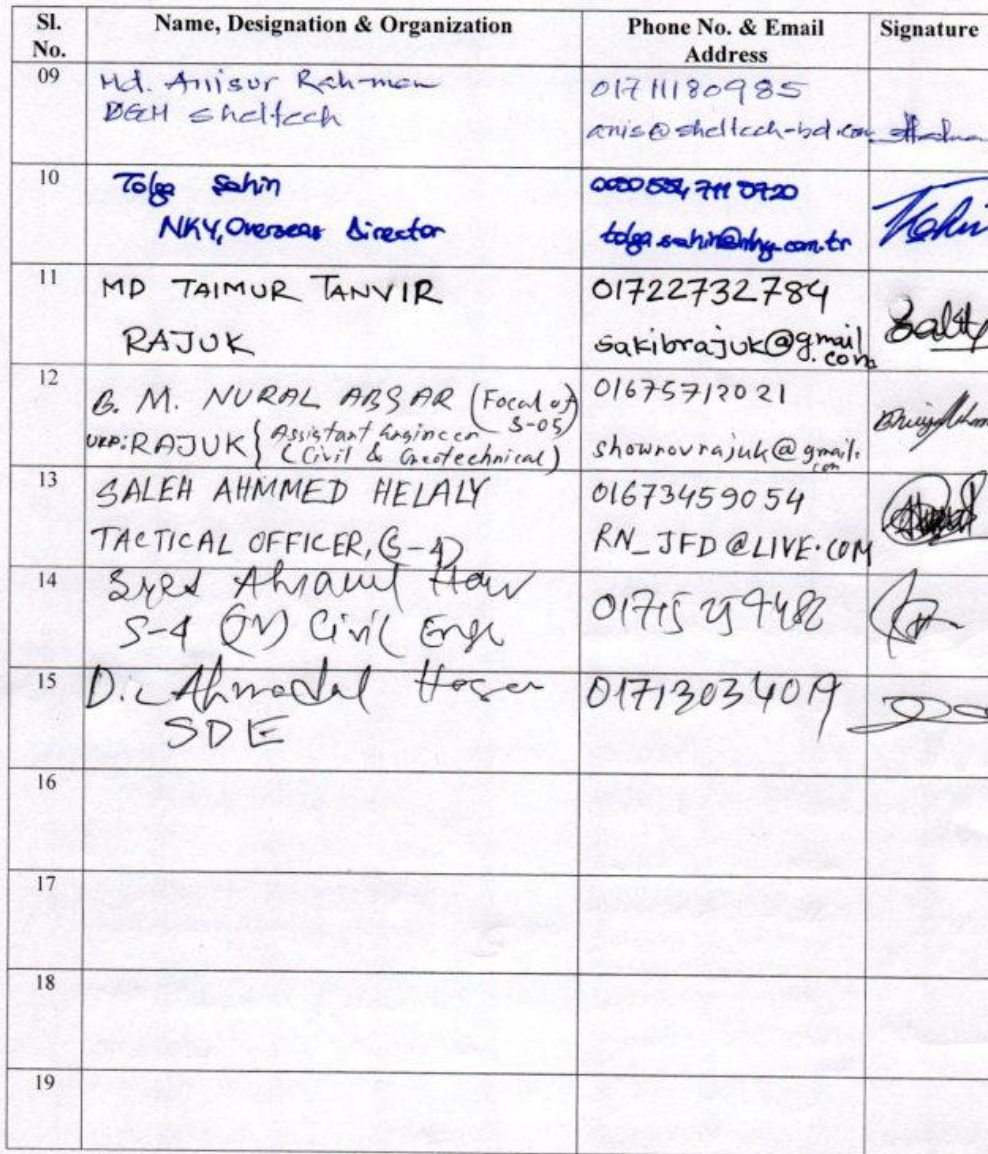 Sl. No.
Name, Designation & Organization
Phone No. & Email Address
Signature
09
Md. Anisur Rahman
Sheltech
01711180985
anis@sheltech-bd.com
10
Tolga Sahin
NKY, Overseas Director
11
MD TAIMUR TANVIR
RAJUK
01722732784
sakibrajuk@gmail.com
12
B. M. NURAL ABSAR (Focal of S-05)
URP: RAJUK { Assistant Engineer (Civil & Geotechnical)
01675712021
shownovrajuk@gmail.com
13
SALEH AHMMED HELALY
TACTICAL OFFICER, (S-4)
01673459054
RN_JFD@LIVE.COM
14
S-4 Civil Engr
15
Dr. Hasan
SDE
01713034019
16
17
18
19